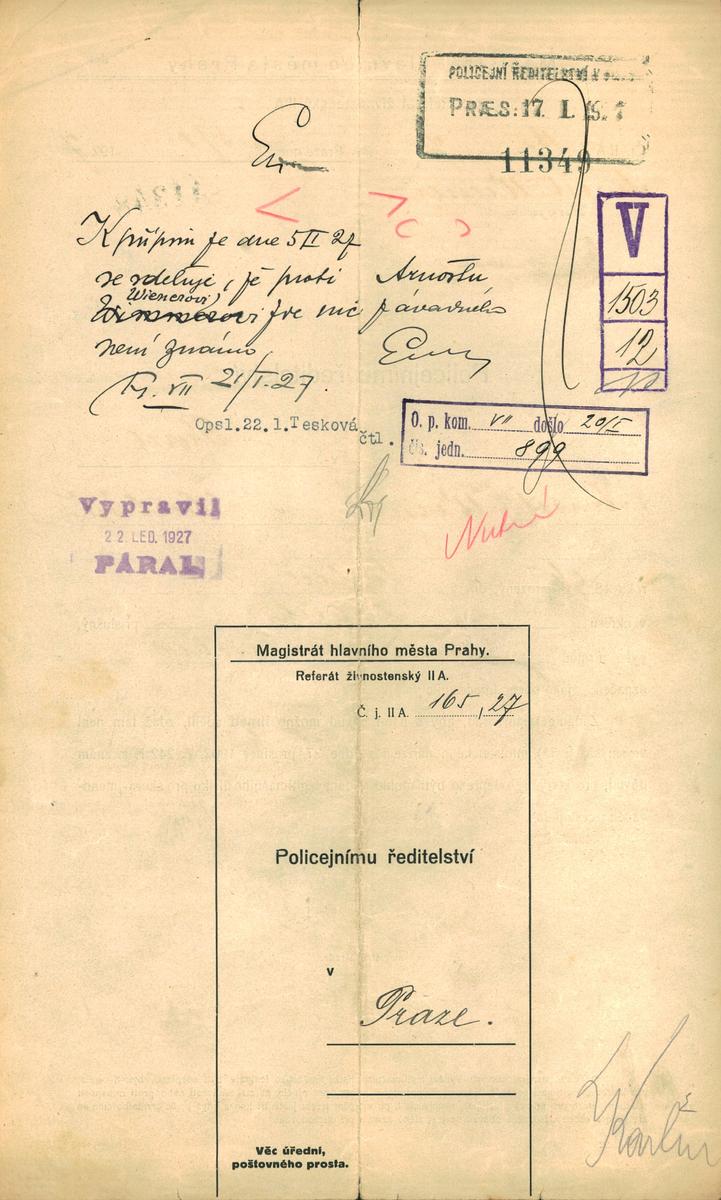 POLICEJNÍ ŘEDITELSTVÍ V
PRÆS: 17 I. 19 7
11349
V
1503
12
K přípisu ze dne 5 II 27
se sděluje, že proti Arnoštu
Wienerovi
zde nic závadného
není známo
VII 21/I.27.
Opsl.22.1.Tesková
čtl.
O. p. kom. VII došlo 20/I
čís. jedn. 899
Vypravil
22. LED. 1927
PÁRAL
Magistrát hlavního města Prahy.
Referát živnostenský II A.
Č. j. II A. 165, 27
Policejnímu ředitelství
v
Praze.
Věc úřední,
poštovného prosta.
Karlín